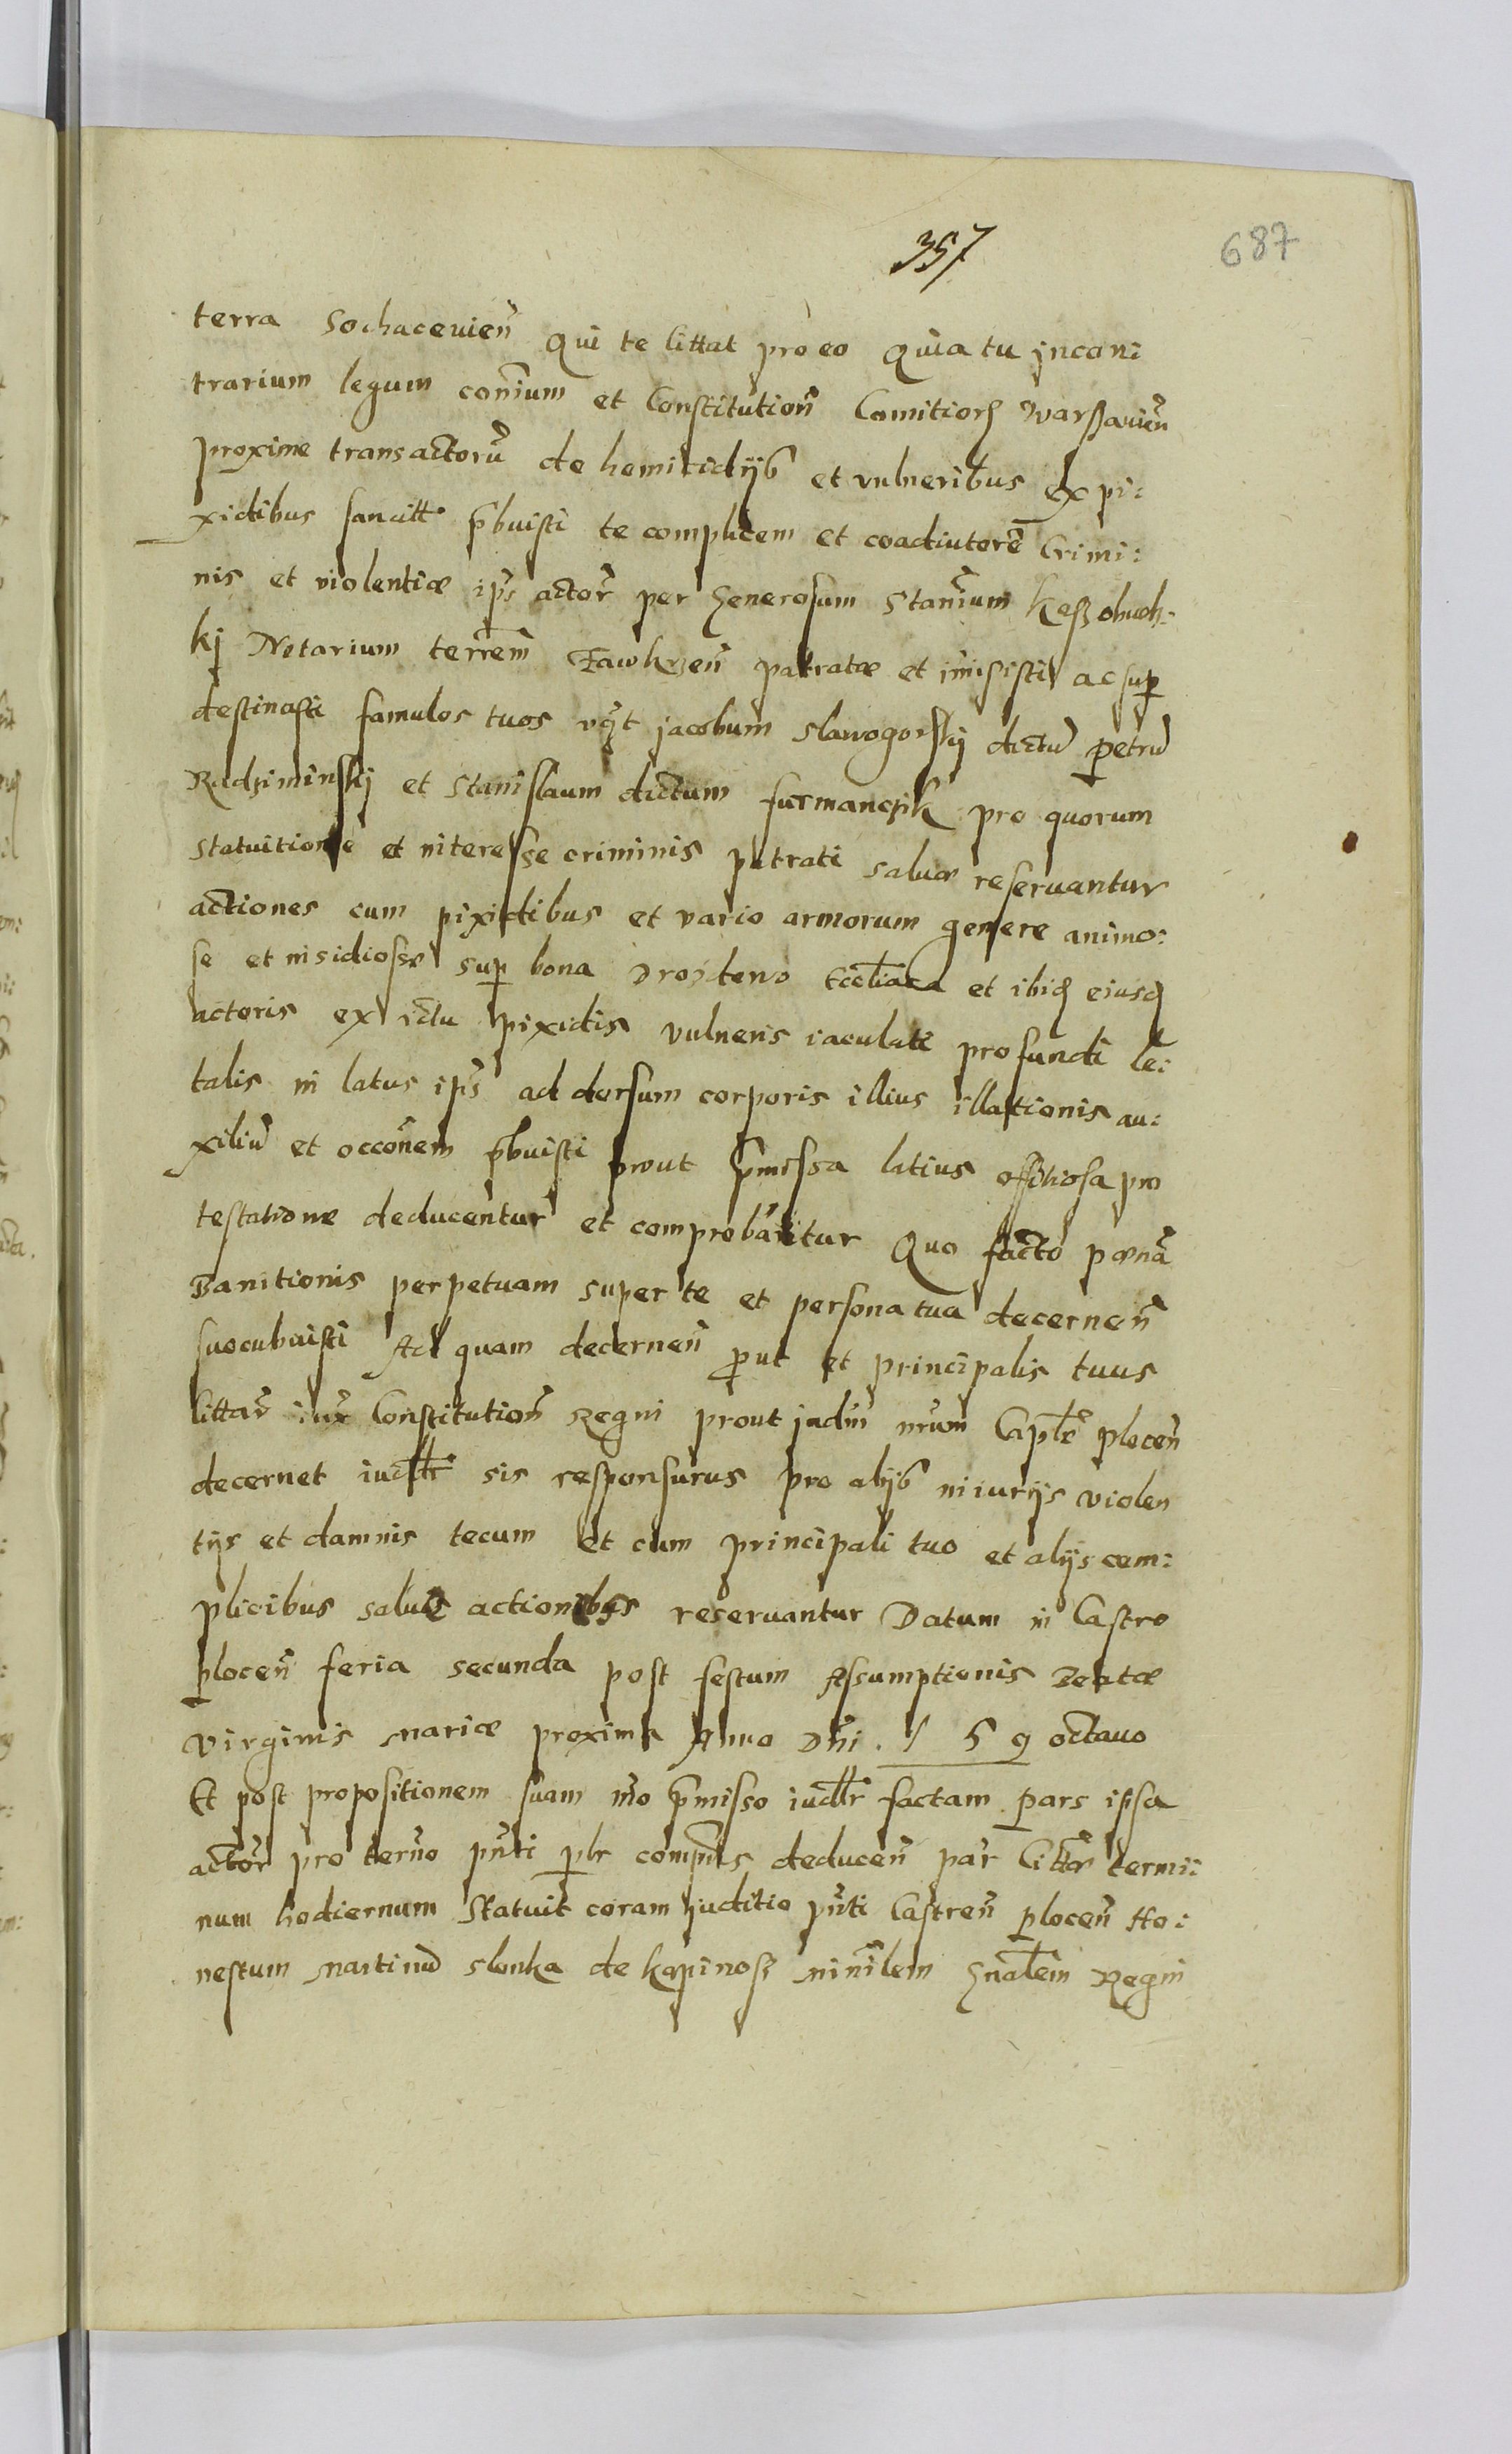 357
687
terra Sochaceuien̄ Qui te littat pro eo Quia tu incon:
trarium legum com̄unium et Constitution̄ Comitiorꝫ Warßauien̄
proxime transactorū de homicidijs et vulneribus ex pi:
xidibus sancitt p̄buisti te complicem et coadiutorē Crimi:
nis et violentiæ ip̄s actor̄ per Generosum Stan̄um
kj Notarium terrēm patratæ et im̄isisti ac sup
destinasti famulos tuos vꝫt jacobum Slawogorskj dictū petrū
Radziminskj et Stanislaum dictum furmanczik pro quorum
statuitione et interesse criminis patrati saluæ reseruantur
actiones cum pixidibus et vario armorum genere animo:
se et insidiose sup bona Drozdewo Eccl̄iaca et ibidꝫ eiusdꝫ
actoris ex ictu pixidis vulneris iaculati profundi le:
talis in latus ip̄s ad dorsum corporis illius illationis au:
xiliū et occōnem p̄buisti prout p̄missa latius offitiosa pro
testatione deducentur et comprobabitur Quo facto pœnā
Banitionis perpetuam super te et persona tua decernen̄
succubuisti Ad quam decernen̄ put et principalis tuus
littar̄ iux Constitution̄ Regni prout judm̄ nr̄um Capt̄le plocen̄
decernet iudllr sis responsurus pro alijs iniurijs violen
tijs et damnis tecum et cum principali tuo et alijs com:
plicibus salue actiones reseruantur Datum in Castro
plocen̄ feria secunda post festum Assumptionis Beatæ
Virginis mariæ proxima Anno Dn̄i. 1 5 9 octauo
Et post propositionem suam mō p̄misso iudllr factam pars ipsa
actor̄ pro termo pn̄ti plr compn̄s deducen̄ par Littar̄ termi:
num hodiernum Statuit coram juditio pn̄ti Castren̄ plocen̄ Ho:
nestum martinū slonka de kapinosz min̄rlem Gn̄alem Regni